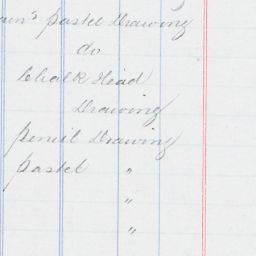 Pastel Drawing
do
Chalk Head
Drawing
Pencil Drawing
Pastel "
"
"